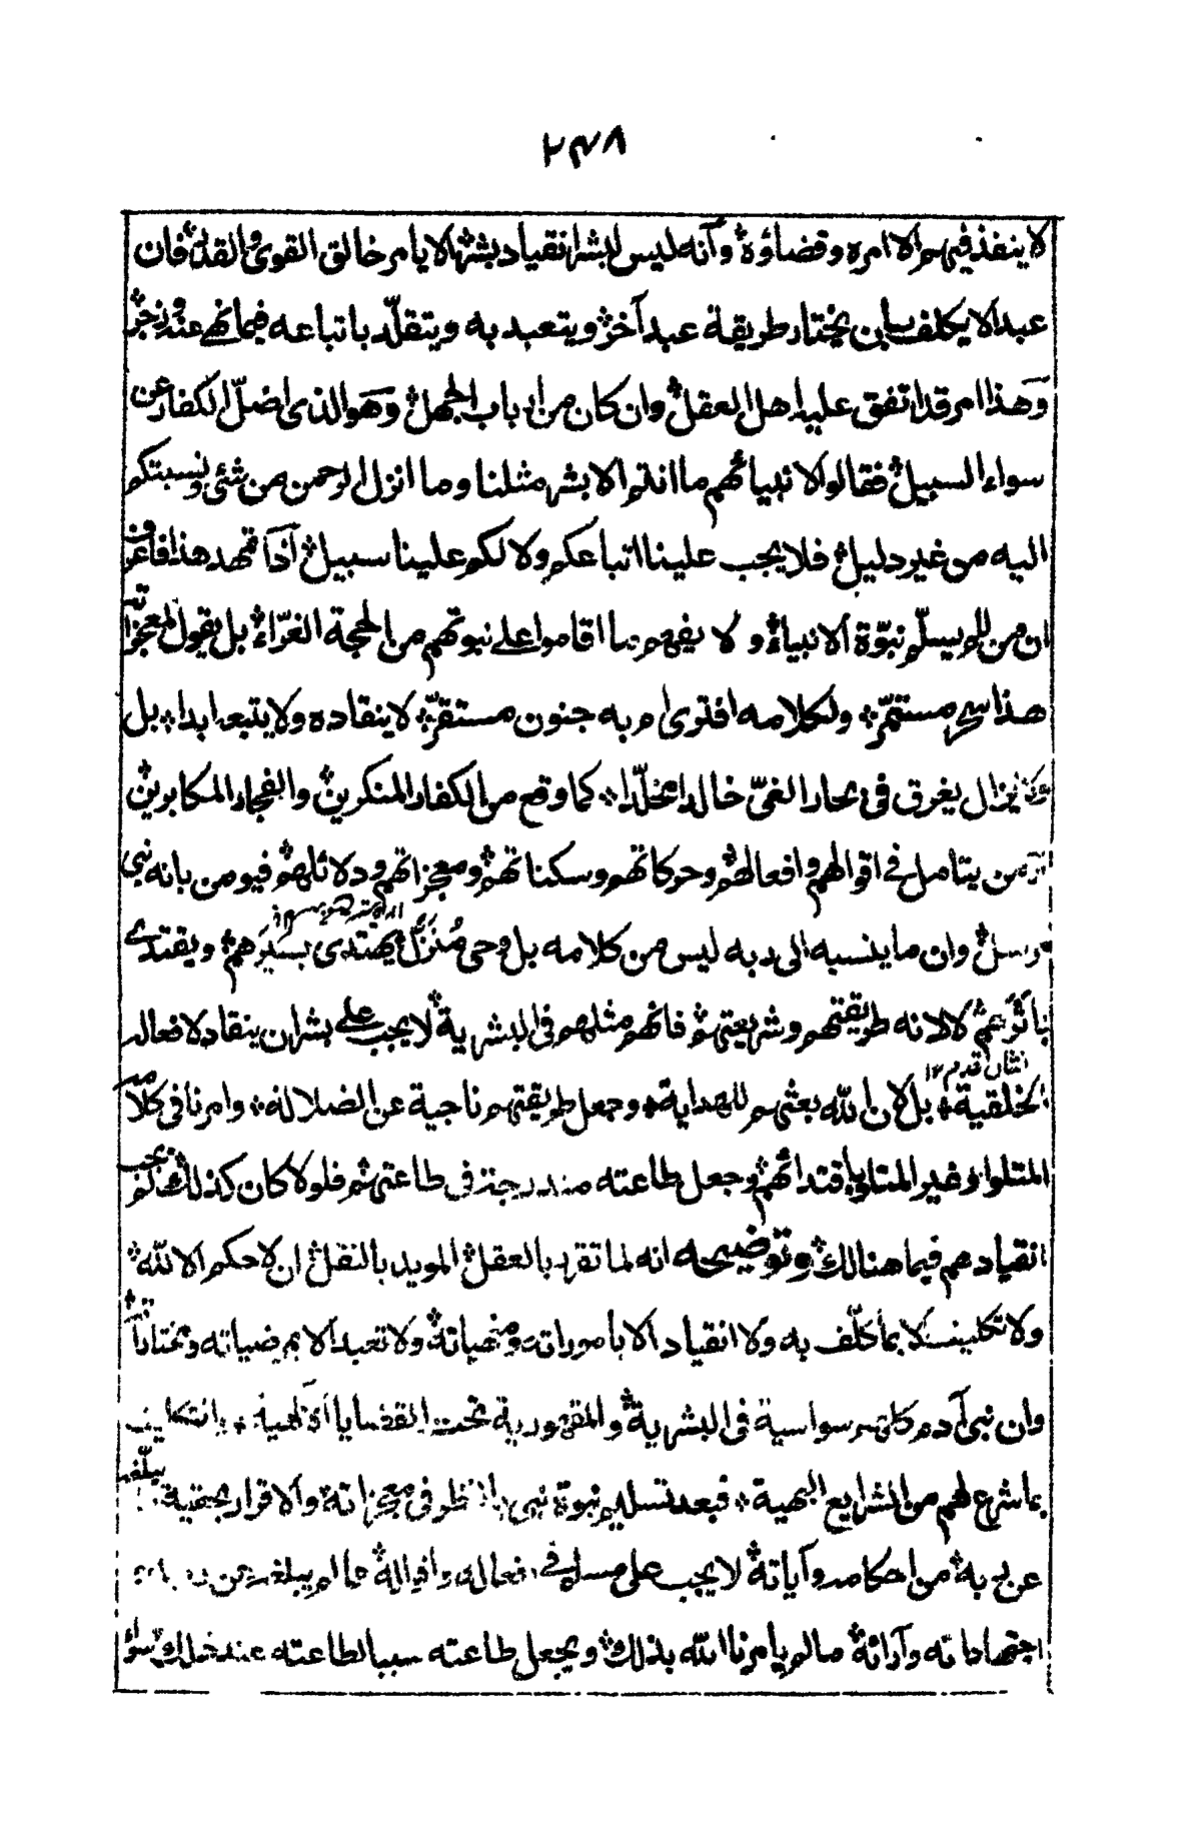 ٢٣٨
لا ينفذ فيهم الا امره وقضاؤه وآنه ليس لبشر انقياد بشر الا بامر خالق القوى والقدر فان
عبدا لا يكلف بان يختار طريقة عبد آخر ويتعبد به ويتقلّد باتباعه فيما نهى عنه وزجر
وهذا امر قد اتفق عليه اهل العقل وان كان من ارباب الجهل وهو الذى اضلّ الكفار عن
سواء السبيل فقالوا لانبيائهم ما انتم الا بشر مثلنا وما انزل الرحمن من شئ ونسبتكم
اليه من غير دليل فلا يجب علينا اتباعكم ولا لكم علينا سبيل اذا تمهد هذا فاعرف
ان من لم يسلّم نبوّة الانبياء ولا يفهم ما اقاموا على نبوتهم من الحجة الغرّاء بل يقول لمعجزاته
هذا سحر مستمرّ ولكلامه افترى ام به جنون مستقرّ لا ينقاده ولا يتبعه ابدا بل
يزال يغرق فى بحار الغىّ خالدا مخلّدا كما وقع من الكفار المنكرين والفجار المكابرين
من يتامل فى اقوالهم وافعالهم وحركاتهم وسكناتهم ومعجزاتهم ودلائلهم فيومن بانه نبى
رسل وان ما ينسبه الى ربه ليس من كلامه بل وحى مُنَزَّل يهتدى بسيرهم ويقتدى
باثرهم لا لانه طريقتهم وشريعتهم فانهم مثلهم فى البشرية لا يجب على بشر ان ينقاد لافعاله
نشان قدم ١٢
الخلقية بل لان الله بعثهم للهداية وجعل طريقتهم ناجية عن الضلالة وامرنا فى كلامه
المتلو وغير المتلو باقتدائهم وجعل طاعته مندرجة فى طاعتهم فلولا كان كذلك لم يجب
انقيادهم فيما هنالك وتوضيحه انه لما تقرر بالعقل المويد بالنقل ان لا حكم الا لله
ولا تكليف الا بما كلّف به ولا انقياد الا بامورات ومنهياته ولا تعبد الا بمرضياته ومختاراته
وان بنى آدم كلهم سواسية فى البشرية والمقهورية تحت القضايا الالهية والتكاليف
بما شرع لهم من الشرايع البهية فبعد تسليم نبوة نبى بالنظر فى معجزاته والاقرار بحقية ما يبلّغه
عن ربه من احكامه وآياته لا يجب على مسلم فى افعاله واقواله ما لم يبلغه عن
اجتهاداته وآرائه ما لم يامرنا الله بذلك ويجعل طاعته سببا لطاعته عند ذلك سواء